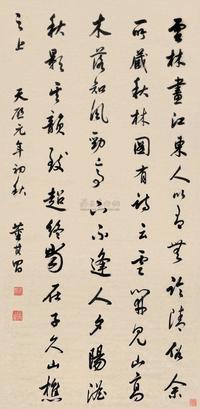 雲林畫江東人以有無論清俗余
所藏秋林圖有詩云雲開見山高
木落知風勁亭下不逢人夕陽澹
秋影其韻致超絕當在子久山樵
之上 天啟元年初秋 董其昌